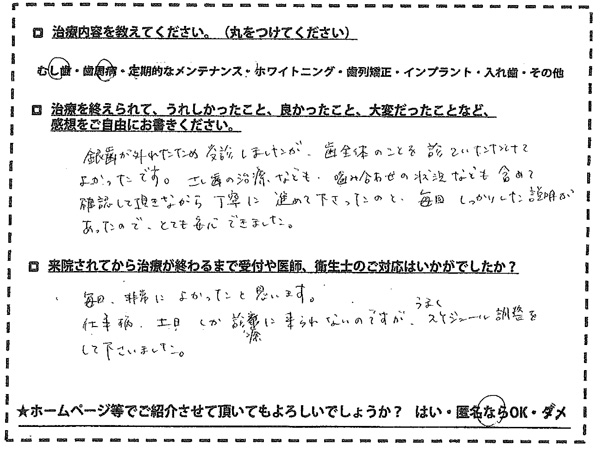 治療内容を教えてください。(丸をつけてください)
むし歯・歯周病・定期的なメンテナンス・ホワイトニング・歯列矯正・インプラント・入れ歯・その他
治療を終えられて、うれしかったこと、良かったこと、大変だったことなど、
感想をご自由にお書きください。
銀歯が外れたため受診しましたが、歯全体のことを診ていただけて
よかったです。むし歯の治療なども、噛み合わせの状況なども含めて
確認して頂きながら丁寧に進めて下さったのと、毎回しっかりした説明が
あったので、とても安心できました。
来院されてから治療が終わるまで受付や医師、衛生士のご対応はいかがでしたか?
毎回、非常によかったと思います。
仕事柄、土日しか診療に来られないのですが、うまくスケジュール調整を
して下さいました。
★ホームページ等でご紹介させて頂いてもよろしいでしょうか? はい・匿名ならOK・ダメ